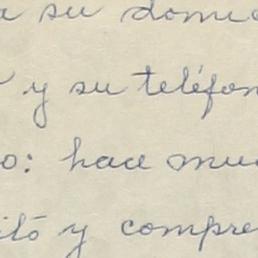 a su domic
y su teléfon
o: hace muc
itó y compre